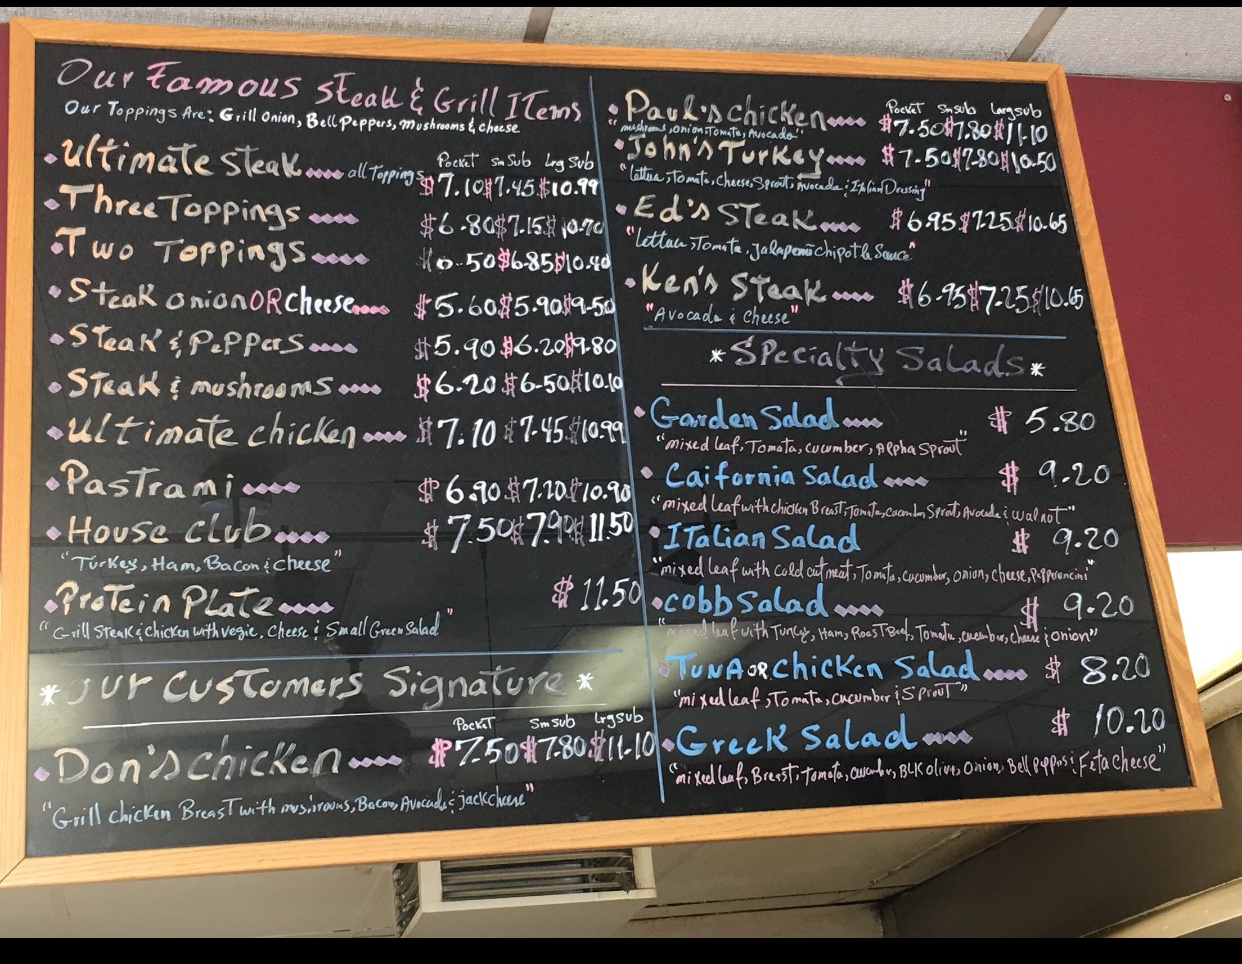 Our Famous Steak & Grill Items
Our Toppings Are: Grill Onion, Bell Peppers, Mushrooms & cheese
Pocket Sm Sub Lrg Sub
Ultimate Steak all Toppings $7.10 $7.45 $10.99
Three Toppings $6.80 $7.15 $10.70
Two Toppings $6.50 $6.85 $10.40
Steak onion OR cheese $5.60 $5.90 $9.50
Steak & Peppers $5.90 $6.20 $9.80
Steak & mushrooms $6.20 $6.50 $10.10
Ultimate chicken $7.10 $7.45 $10.99
Pastrami $6.90 $7.20 $10.90
House club $7.50 $7.90 $11.50
"Turkey, Ham, Bacon & cheese"
Protein Plate $11.50
"Grill Steak & chicken with vegie, cheese & Small Green Salad"
*Our Customers Signature*
Pocket Sm Sub Lrg Sub
Don's chicken $7.50 $7.80 $11.10
"Grill chicken Breast with mushrooms, Bacon, Avocado & jack cheese"
Pocket Sm Sub Larg Sub
Paul's chicken $7.50 $7.80 $11.10
"mushrooms, onion, Tomato, Avocado"
John's Turkey $7.50 $7.80 $10.50
"lettuce, Tomato, cheese, Sprout, Avocado & Italian Dressing"
Ed's Steak $6.95 $7.25 $10.65
"Lettuce, Tomato, Jalapeno chipotle Sauce"
Ken's Steak $6.95 $7.25 $10.65
"Avocado & cheese"
*Specialty Salads*
Garden Salad $5.80
"mixed leaf, Tomato, cucumber, Alpha Sprout"
Caifornia Salad $9.20
"mixed leaf with chicken Breast, Tomato, cucumber, Sprout, Avocado & walnut"
Italian Salad $9.20
"mixed leaf with cold cut meat, Tomato, cucumber, onion, cheese, Pepperoncini"
cobb Salad $9.20
"mixed leaf with Turkey, Ham, Roast Beef, Tomato, cucumber, cheese & onion"
Tuna OR chicken Salad $8.20
"mixed leaf, Tomato, cucumber & Sprout"
Greek Salad $10.20
"mixed leaf, Breast, tomato, cucumber, BLK olive, Onion, Bell peppers & Feta cheese"